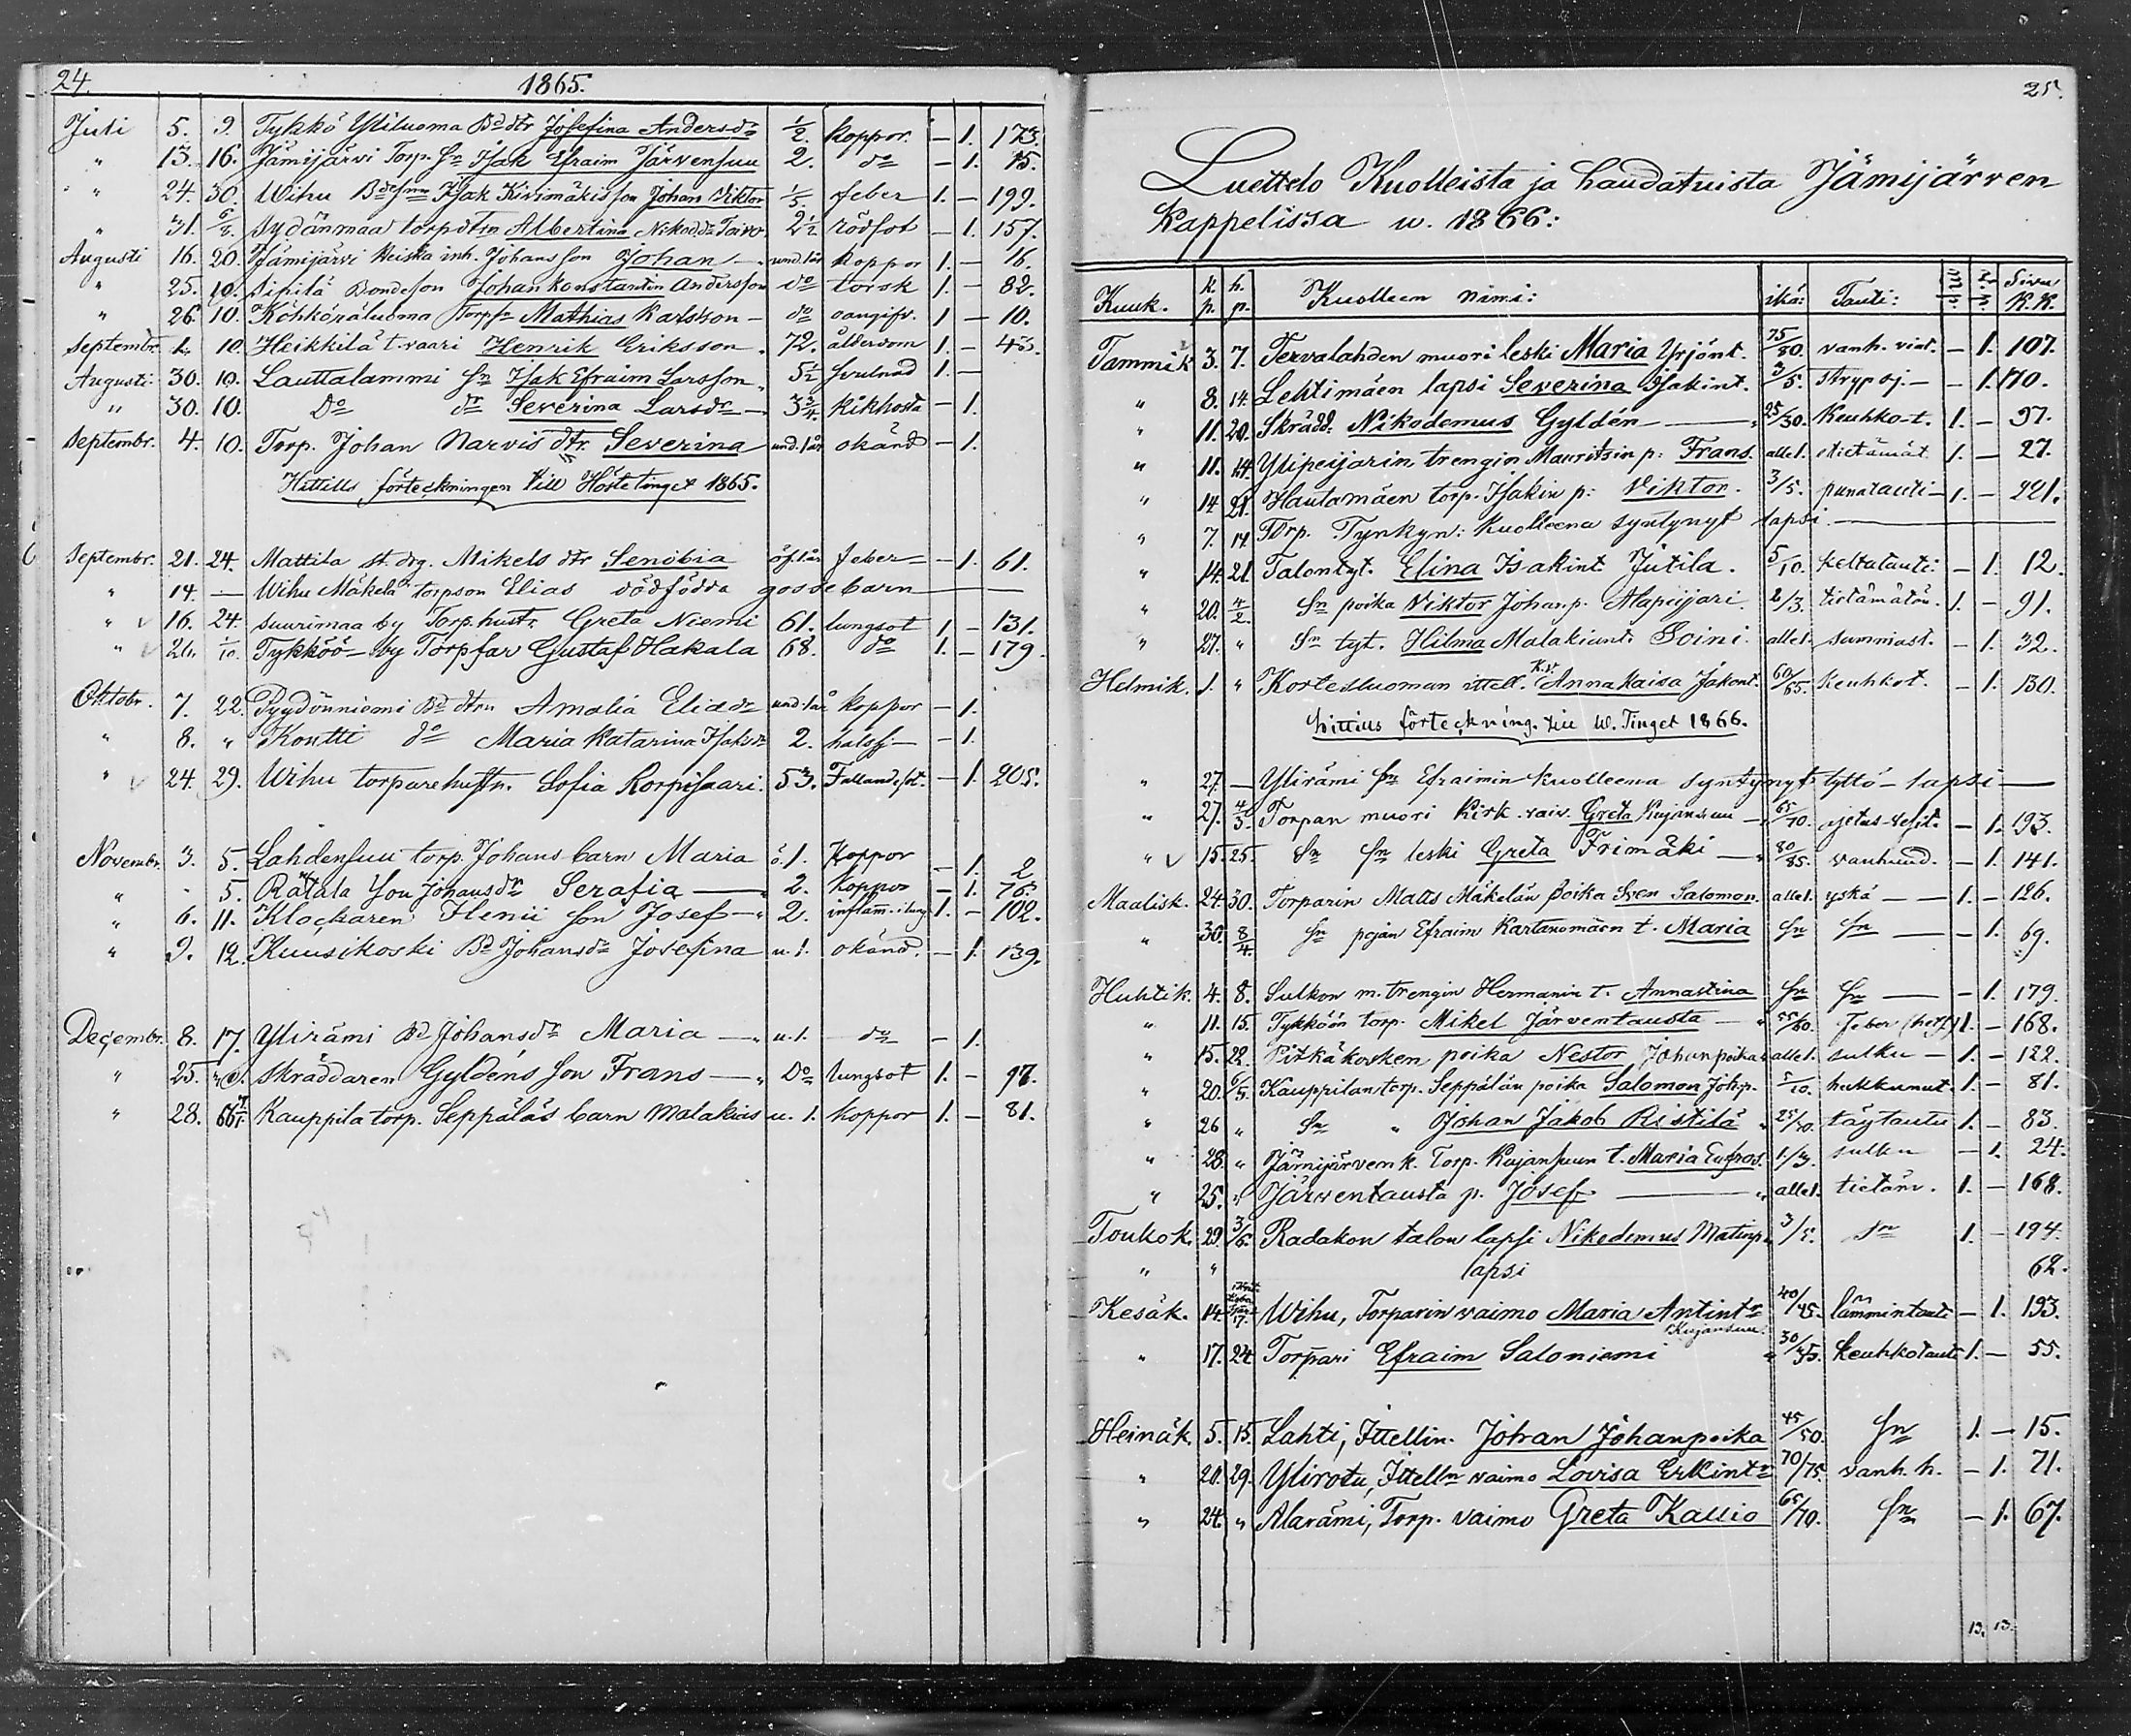 24. 1865.
Juli 5. 9. Tykkö Yliluoma Bd dtr Josefina Andersdr ½. koppor. — 1. 173.
" 13. 16. Jämijärvi Torp. Sn Isak Efraim Järvensuu 2. do — 1. 15.
" 24. 30. Wihu Isak Kivimäkis son Johan Viktor 1/5. feber 1. — 199.
" 31. 6/8. Sydänmaa torp dtrn Albertina Toivo. 2½ rödsot — 1. 157.
Augusti 16. 20. Jämijärvi Heiska inh. Johans son Johan — und. 1 år koppor 1. — 16.
" 25. 10. Sipilä Bondeson Johan Konstantin Andersson do torsk 1. — 82.
" 26. 10. Torp Sn Mathias Karlsson — do oangifv. 1 — 10.
Septembr. 1. 10. Heikkilä t. vaari Henrik Eriksson. 72. ålderdom 1. — 43.
Augusti. 30. 10. Lauttalammi Sn Isak Efraim Larsson. 5½ svulnad 1. —
" 30. 10. Do dr Severina Larsdr — 3¾. kikhosta — 1.
Septembr. 4. 10. Torp. Johan Narvis dtr. Severina und. 1 år okänd — 1.
Hittills förteckningen till Höstetinget 1865.
Septembr. 21. 24. Mattila st. drg. Mikels dtr Senobia öf. 1 år feber — — 1. 61.
" 14. — Wihu Mäkelä torpson Elias dödfödda gossebarn —
" 16. 24. Suurimaa by Torp. hustr. Greta Niemi 61. lungsot 1 — 131.
" 26. 1/10. Tykköö — by Torpfar Gustaf Hakala 68. do 1. — 179.
Oktobr. 7. 22. Pyydönniemi Bd dtrn Amalia Eliadr und. 1 år koppor — 1.
" 8. " Kontti do Maria Katarina Isaksdr 2. halss — — 1.
" 24. 29. Wihu torparehustr. Sofia Korpisaari. 53. Fallandesot. — 1. 205.
Novembr. 3. 5. Lahdensuu torp. Johans barn Maria ö. 1. Koppor — 1. 2
" - 5. Rätälä Son Johansdr Serafia — 2. koppor — 1. 76.
" 6. 11. Klockaren Henii son Josef — 2. inflamm. i lung 1. — 102.
" 9. 12. Kuusikoski Bd Johansdr Josefina u. 1. okänd. — 1. 139.
Decembr. 8. 17. Ylirämi Bd Johansdr Maria — u. 1. do — 1.
" 25. Skräddaren Gyldéns son Frans — Do lungsot 1. — 97.
" 28. Kauppila torp. Seppäläs barn Malakias u. 1. koppor 1. — 81.
25.
Luettelo Kuolleista ja haudatuista Jämijärven
Kappelissa w. 1866:
Kuuk. k. p. h. p. Kuolleen nimi: ikä: Tauti: Sivu K.K.
Tammik 3. 7. Tervalahden muori leski Maria Yrjönt. 75/80. vanh. — 1. 107.
" 8. 14. Lehtimäen lapsi Severina Isakint. 3/5. strypsj. — — 1. 170.
" 11. 20. Skrädd. Nikodemus Gyldén — 25/30. Keuhko-t. 1. — 97.
" 11. 14. Ylipeijarin trengin Mauritsin p: Frans. alle 1. tietämät 1. — 27.
" 14 21. Hautamäen torp. Isakin p: Viktor. 3/5. punatauti — 1. — 221.
" 7. 14 Torp. Tynkyn: kuolleena syntynyt lapsi. —
" 14. 21. Talontyt. Elina Isakint. Jutila. 5/10. keltatauti: — 1. 12.
" 20. 4/2 Sn poika Viktor Johan p. Alapiijari. 2/3. tietämätön. 1. — 91.
" 27. " Sn tyt. Hilma Malakiant. Soini. alle 1. summast. — 1. 32.
Helmik. 1. " Kortesluoman ittell. Anna Kaisa Jakont. 60/65. keuhkot. — 1. 130.
hittills förteckning. till W. Tinget 1866.
" 27. — Ylirämi Sn Efraimin kuolleena syntynyt tyttö-lapsi —
" 27. 4/3. Torpan muori Kirk. vaiv. Greta Kujansuu — 65/70. — 1. 193.
" 15. 25. Sn Sn leski Greta Frimäki — 80/85. vanhuud. — 1. 141.
Maalisk. 24. 30. Torparin Matts Mäkelän poika Sven Salomon. alle 1. yskä — — 1. — 126.
" 30. 8/4. Sn pojan Efraim Kartanomäen t. Maria Sn Sn — — 1. 69.
Huhtik. 4. 8. Sulkon m. trengin Hermanin t. Annastina Sn Sn — — 1. 179.
" 11. 15. Tykköön torp. Mikel Järventausta — 55/60. Feber 1. — 168.
" 15. 22. Pitkäkosken poika Nestor Johanpoika alle 1. sulku — 1. — 122.
" 20. Kauppilan torp. Seppälän poika Salomon Joh. p. 5/10. hukkunut. 1. — 81.
" 26 " Sn " Johan Jakob Ristilä " täytautu 1. — 83.
" 28. " Jämijärven k. Torp. Kujansuun t. Maria Eufros. 1/3. sulku — 1. 24.
" 25. " Järventausta p. Josef — alle 1. tietäm. 1. — 168.
Toukok. 29. 3/6. Radakon talon lapsi Nikodemus Matinp. 3/5. Sn 1. — 194.
" " lapsi 62.
Kesäk. 14. 17. Wihu, Torparin vaimo Maria Antintr Kujansuu 40/45. lämmintauti — 1. 193.
" 17. 24 Torpari Efraim Saloniemi " 30/35. keuhkotauti 1. — 55.
Heinäk. 5. 15. Lahti, Ittellin. Johan Johanpoika 45/50. Sn 1. — 15.
" 20. 29. Ylirotu, Itelln vaimo Lovisa Erkintr 70/75. vanh. h. — 1. 71.
" 24. " Alarämi, Torp. vaimo Greta Kallio 65/70. Sn — 1. 67.
13. 13.